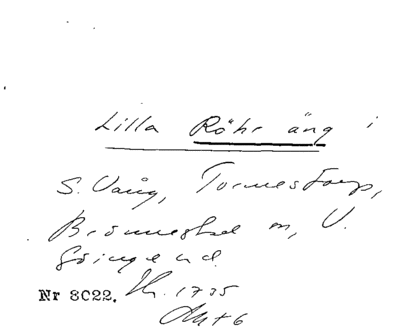 Lilla Röhr äng i
S. Vång, Tormestorp,
Brönnestad sn, V.
Göinge hd.
Nr 8022. Hr. 1735
Akt 6